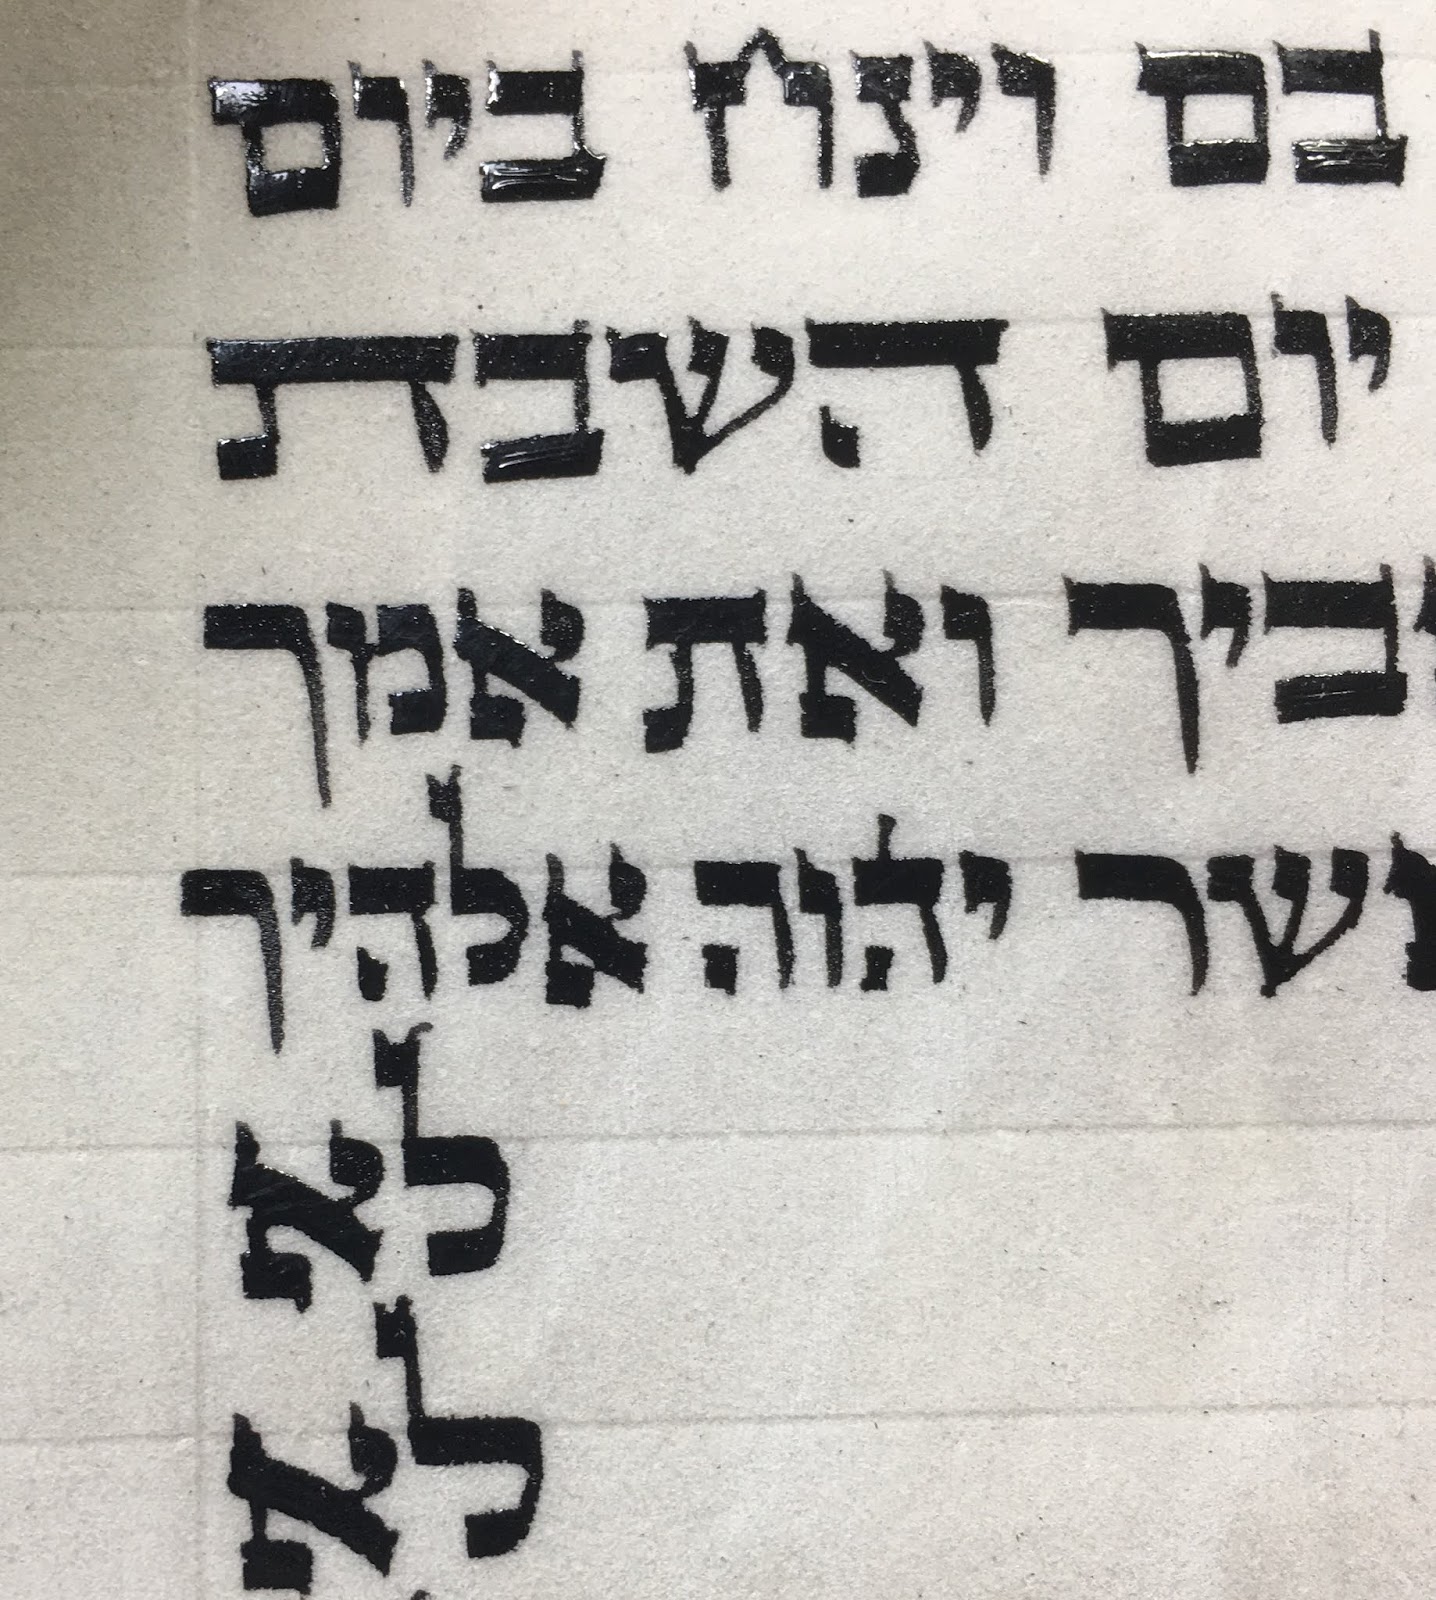 בם וינח ביום
יום השבת
אביך ואת אמך
אשר יהוה אלהיך
לא
לא